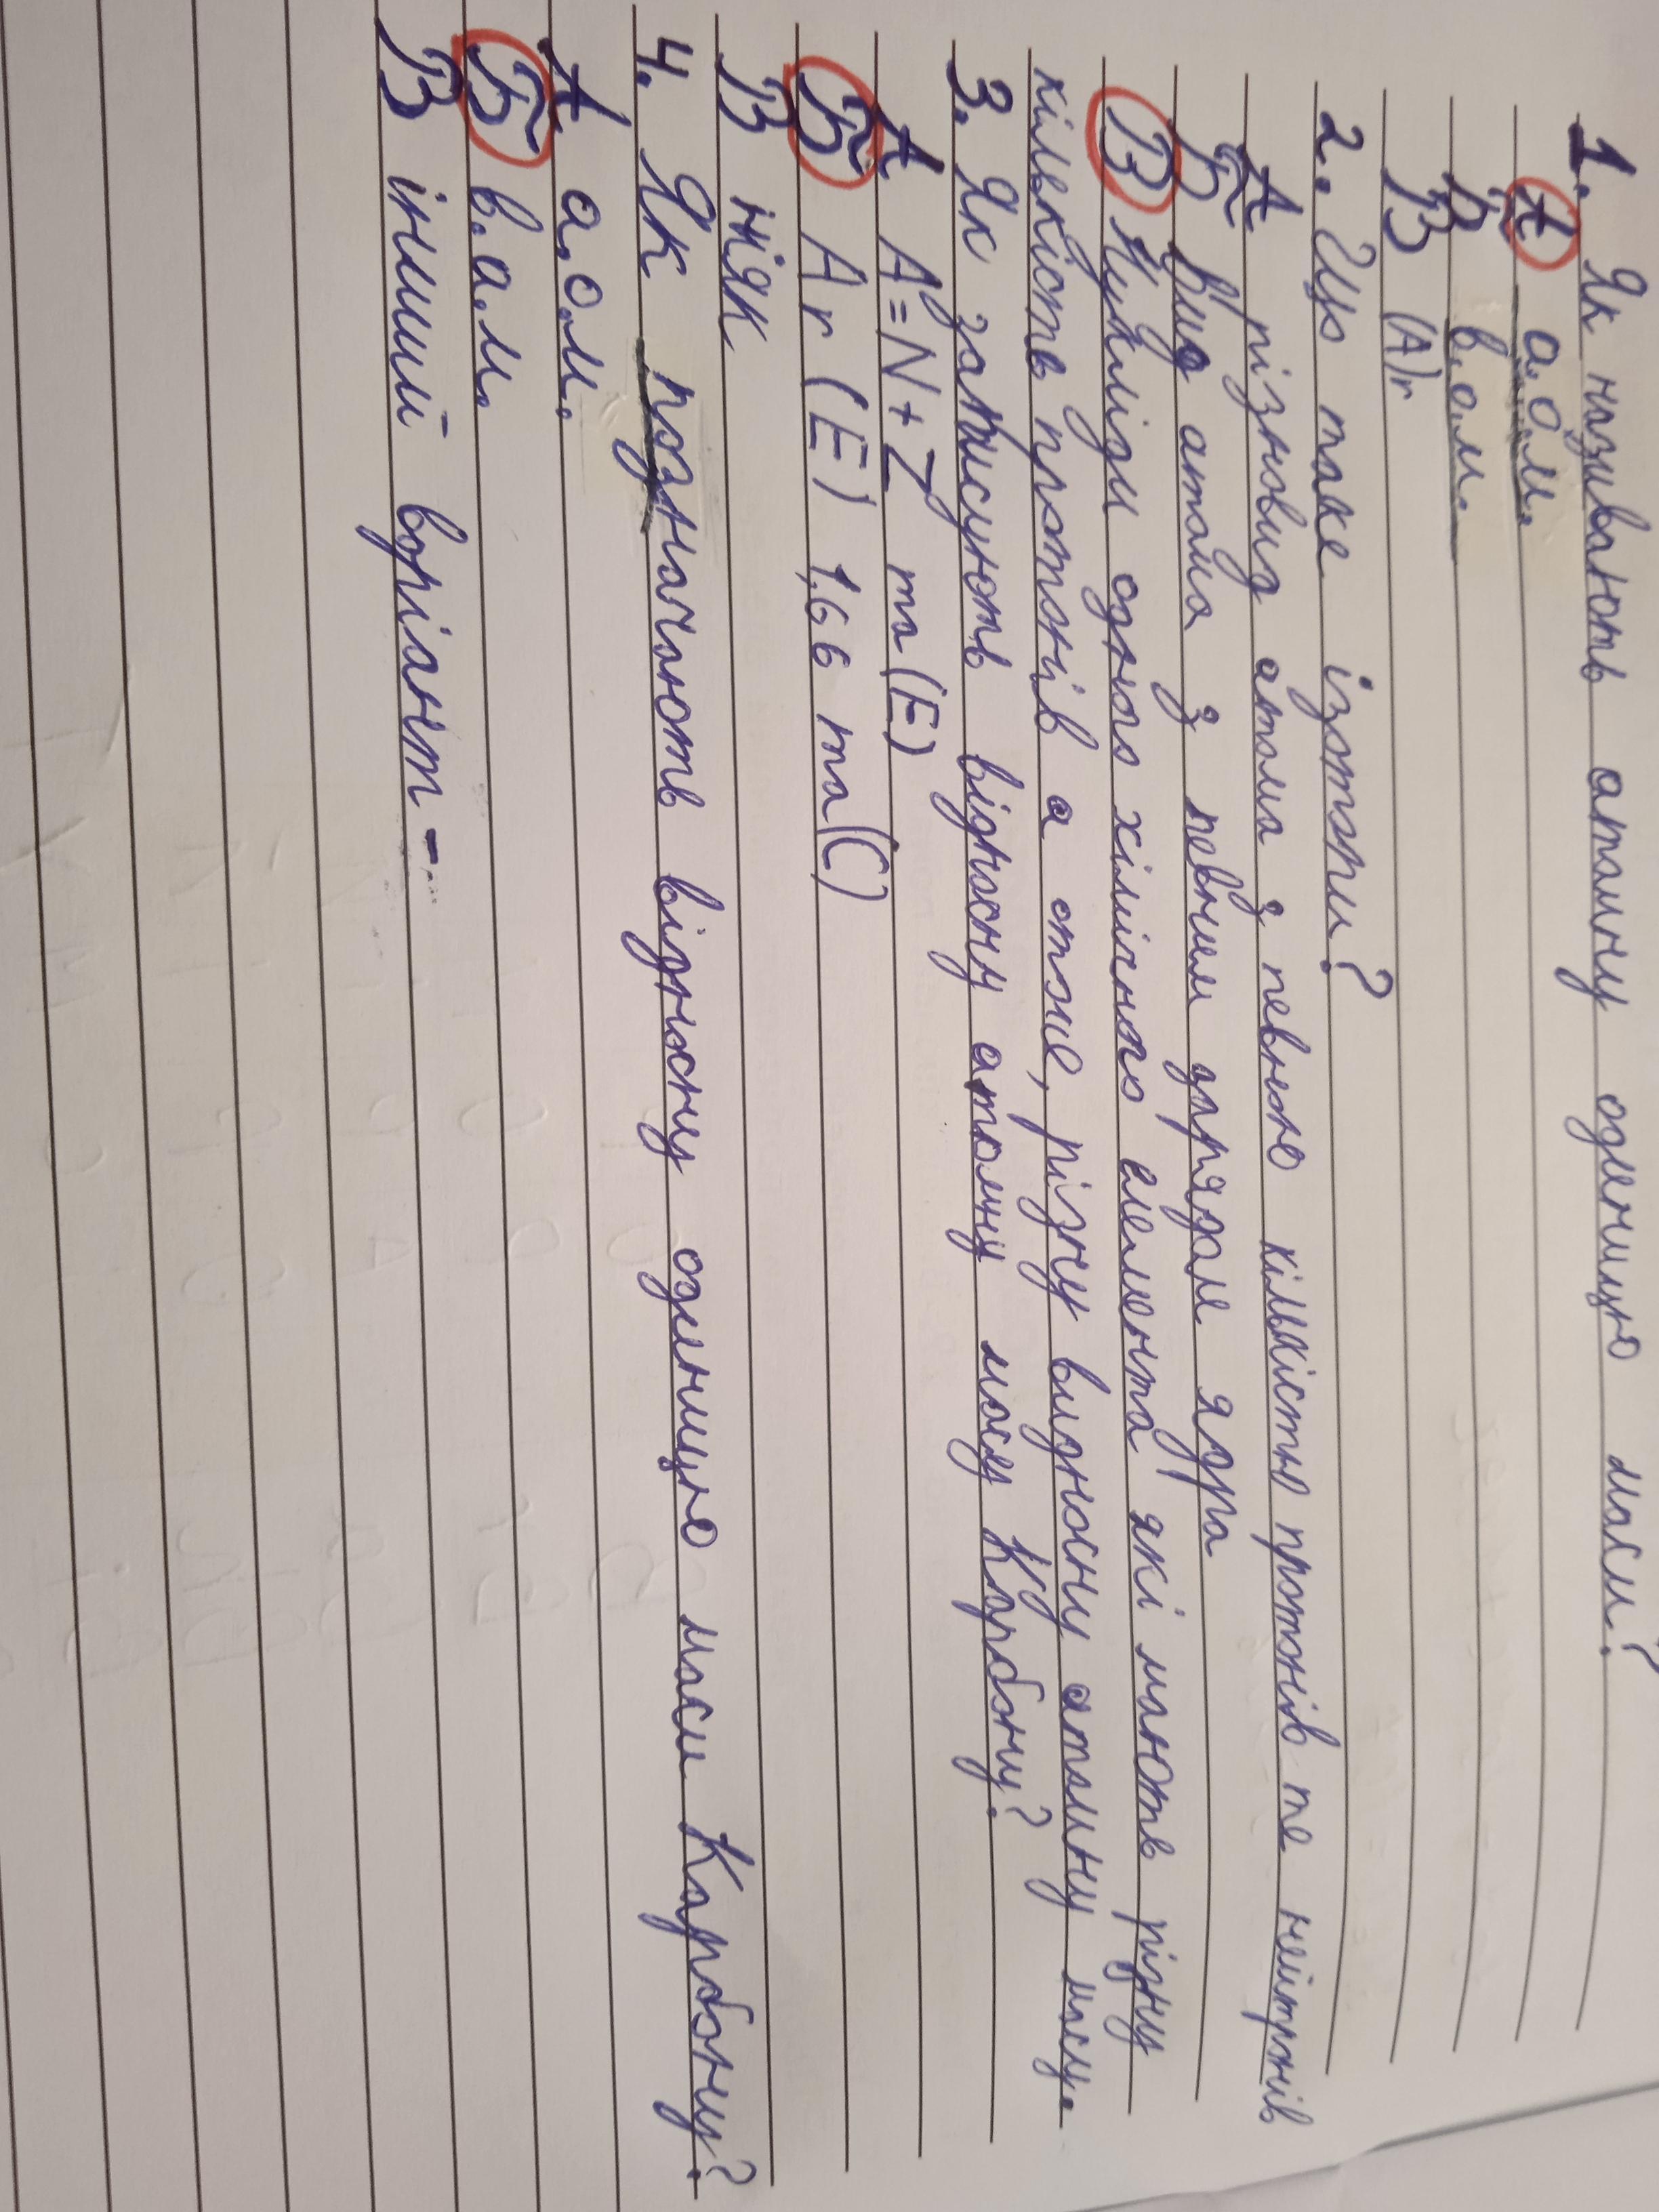 1. Як називають атомну одиницю маси?
А а.о.м.
Б в.о.м.
В (А)r
2. Що таке ізотопи?
А різновид атома з певною кількістю протонів те нейтронів
Б Вид атома з певним зарядом ядра
В Нукліди одного хімічного елемента які мають різну
кількість протонів а отже, різну видносну атомну масу.
3. Як записують відносну атомну масу Карбону?
А A=N+Z ma(E)
Б Ar(E) 1,66 ma(C)
В ніяк
4. Як позначають відносну одиницю маси Карбону?
А а.о.м.
Б в.а.м.
В інший варіант -